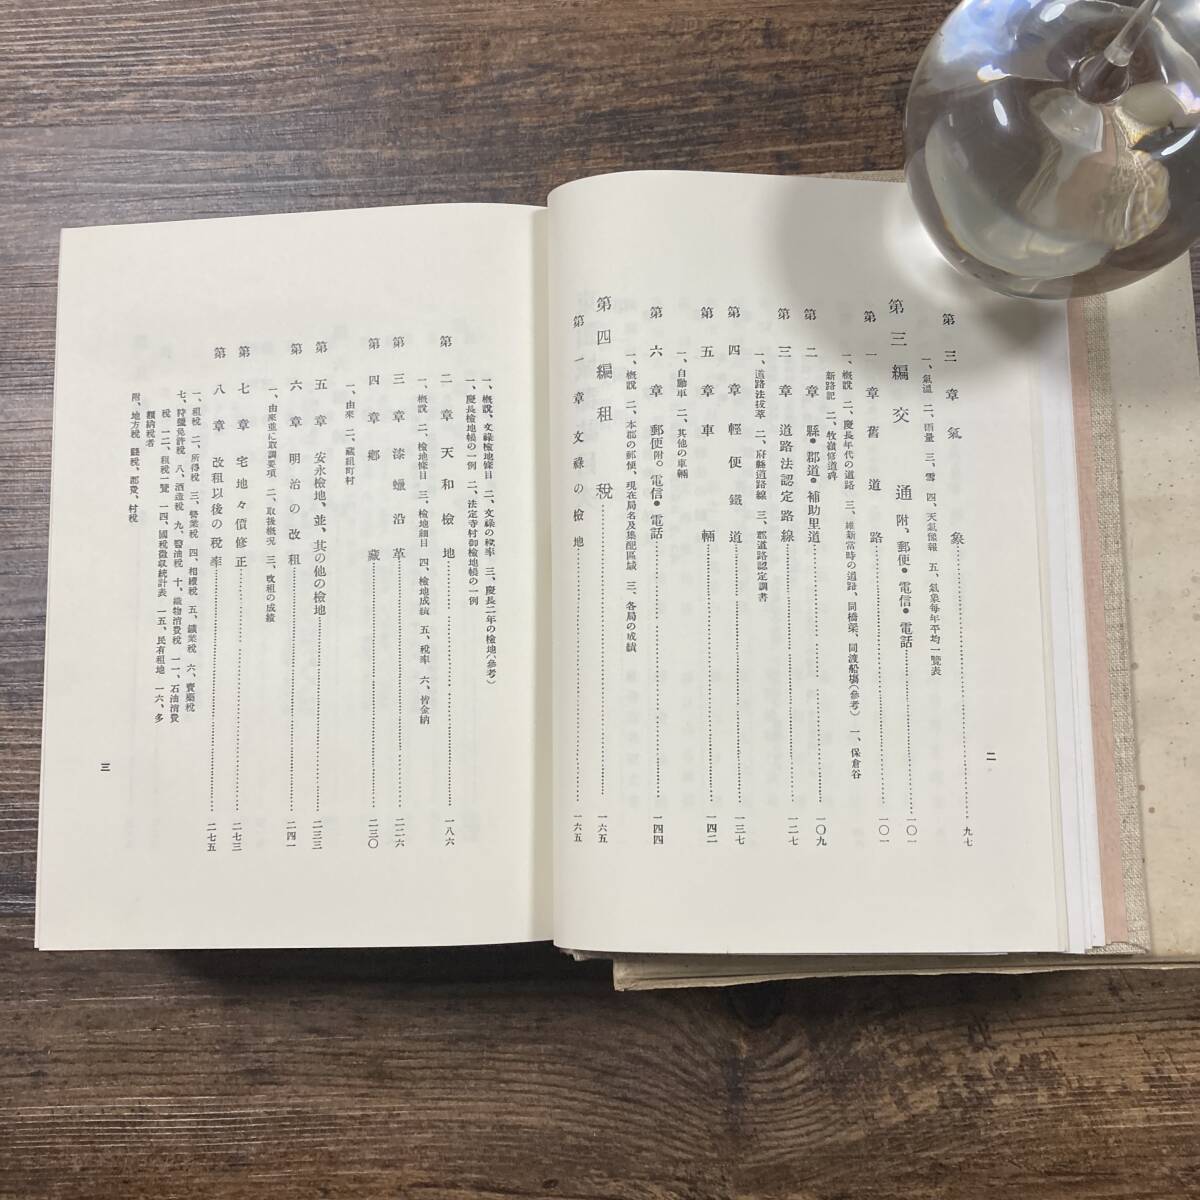 第三章 氣象………九七
一、氣溫 二、雨量 三、雪 四、天氣豫報 五、氣象每年平均一覽表
第三編 交通 附、郵便・電信・電話………一〇一
第一章 舊道路………一〇一
一、概說 二、慶長年代の道路 三、維新當時の道路、同橋梁、同渡船場(參考) 一、保倉谷
新路記 二、牧嶺修道碑
第二章 縣・郡道・補助里道………一〇九
第三章 道路法認定路線………一二七
一、道路法拔萃 二、府縣道路線 三、郡道路認定調書
第四章 輕便鐵道………一三七
第五章 車輛………一四二
一、自動車 二、其他の車輛
第六章 郵便附。電信・電話………一四四
一、概說 二、本郡の郵便、現在局名及集配區域 三、各局の成績
第四編 租稅………一六五
第一章 文祿の檢地………一六五
二
一、概說、文祿檢地條目 二、文祿の稅率 三、慶長二年の檢地(參考)
一、慶長檢地帳の一例 二、法定寺村御檢地帳の一例
第二章 天和檢地………一八六
一、概說 二、檢地條目 三、檢地細目 四、檢地成績 五、稅率 六、皆金納
第三章 漆蠟沿革………二二六
第四章 鄉藏………二三〇
一、由來 二、藏組町村
第五章 安永檢地、並、其の他の檢地………二三三
第六章 明治の改租………二四一
一、由來並に取調要項 二、取扱槪況 三、改租の成績
第七章 宅地々價修正………二七三
第八章 改租以後の稅率………二七五
一、租稅 二、所得稅 三、營業稅 四、相續稅 五、鑛業稅 六、賣藥稅
七、狩獵免許稅 八、酒造稅 九、醬油稅 十、織物消費稅 一一、石油消費
稅 一二、租稅一覽 一四、國稅徵収統計表 一五、民有租地 一六、多
額納稅者
附、地方稅 縣稅、郡費、村稅
三